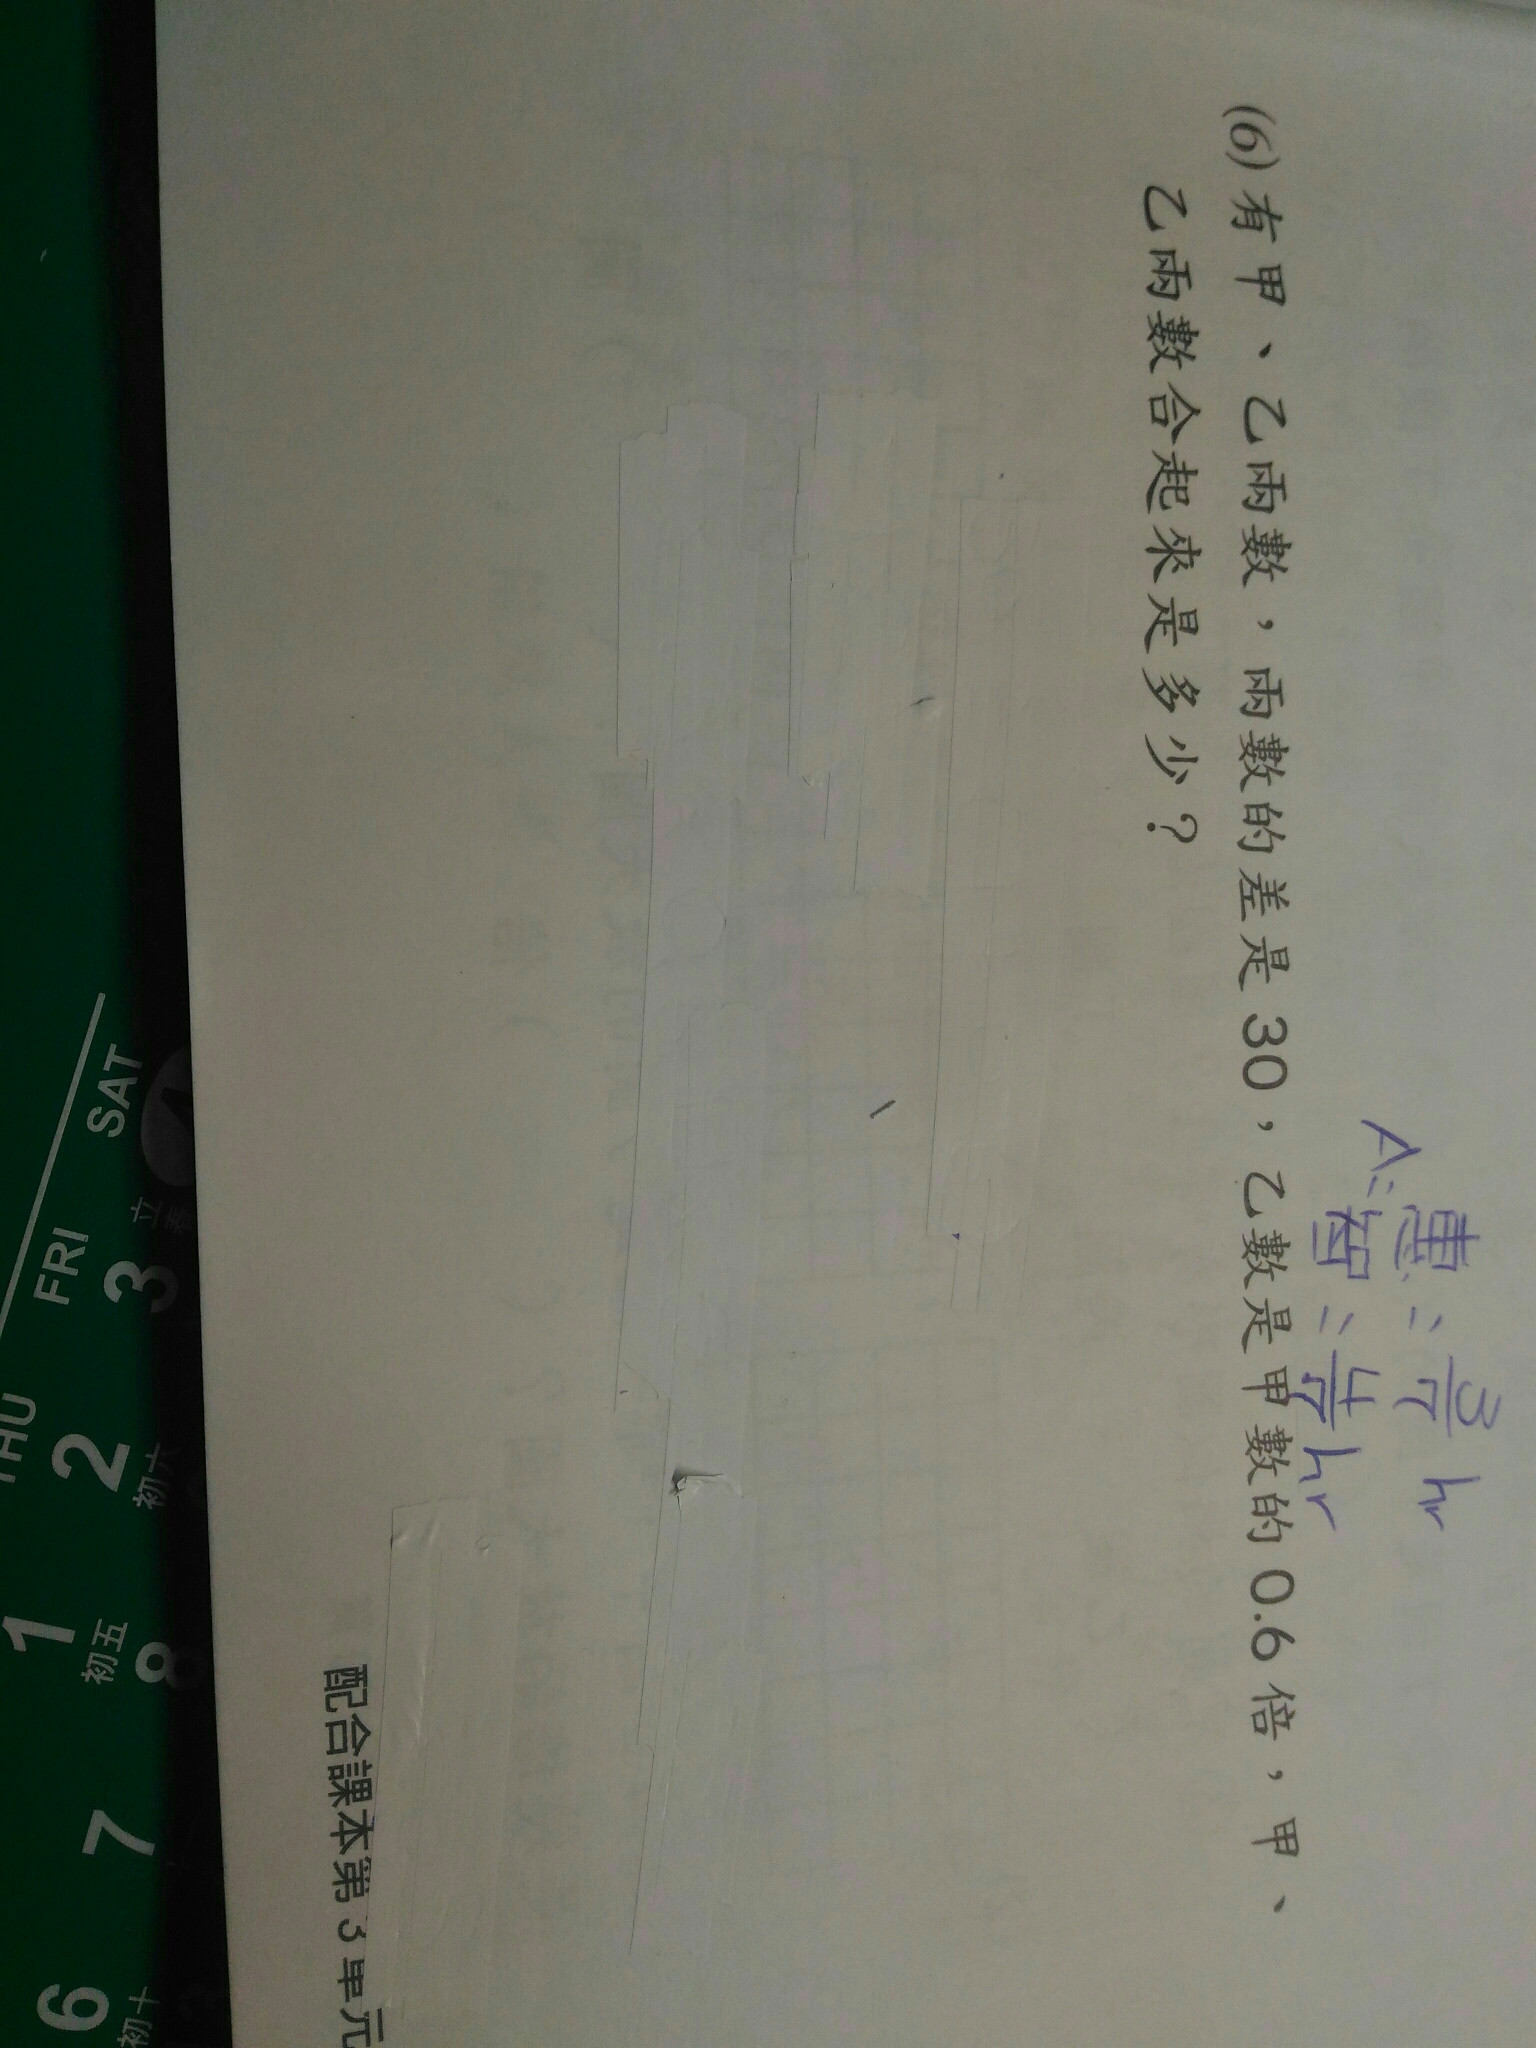 惠：3/5 hr
A：智：4/5 hr
(6)有甲、乙兩數，兩數的差是30，乙數是甲數的0.6倍，甲、
乙兩數合起來是多少？
配合課本第3單元
SAT
FRI
THU
立春
3
2
初六
1
初五
8
7
6
初十